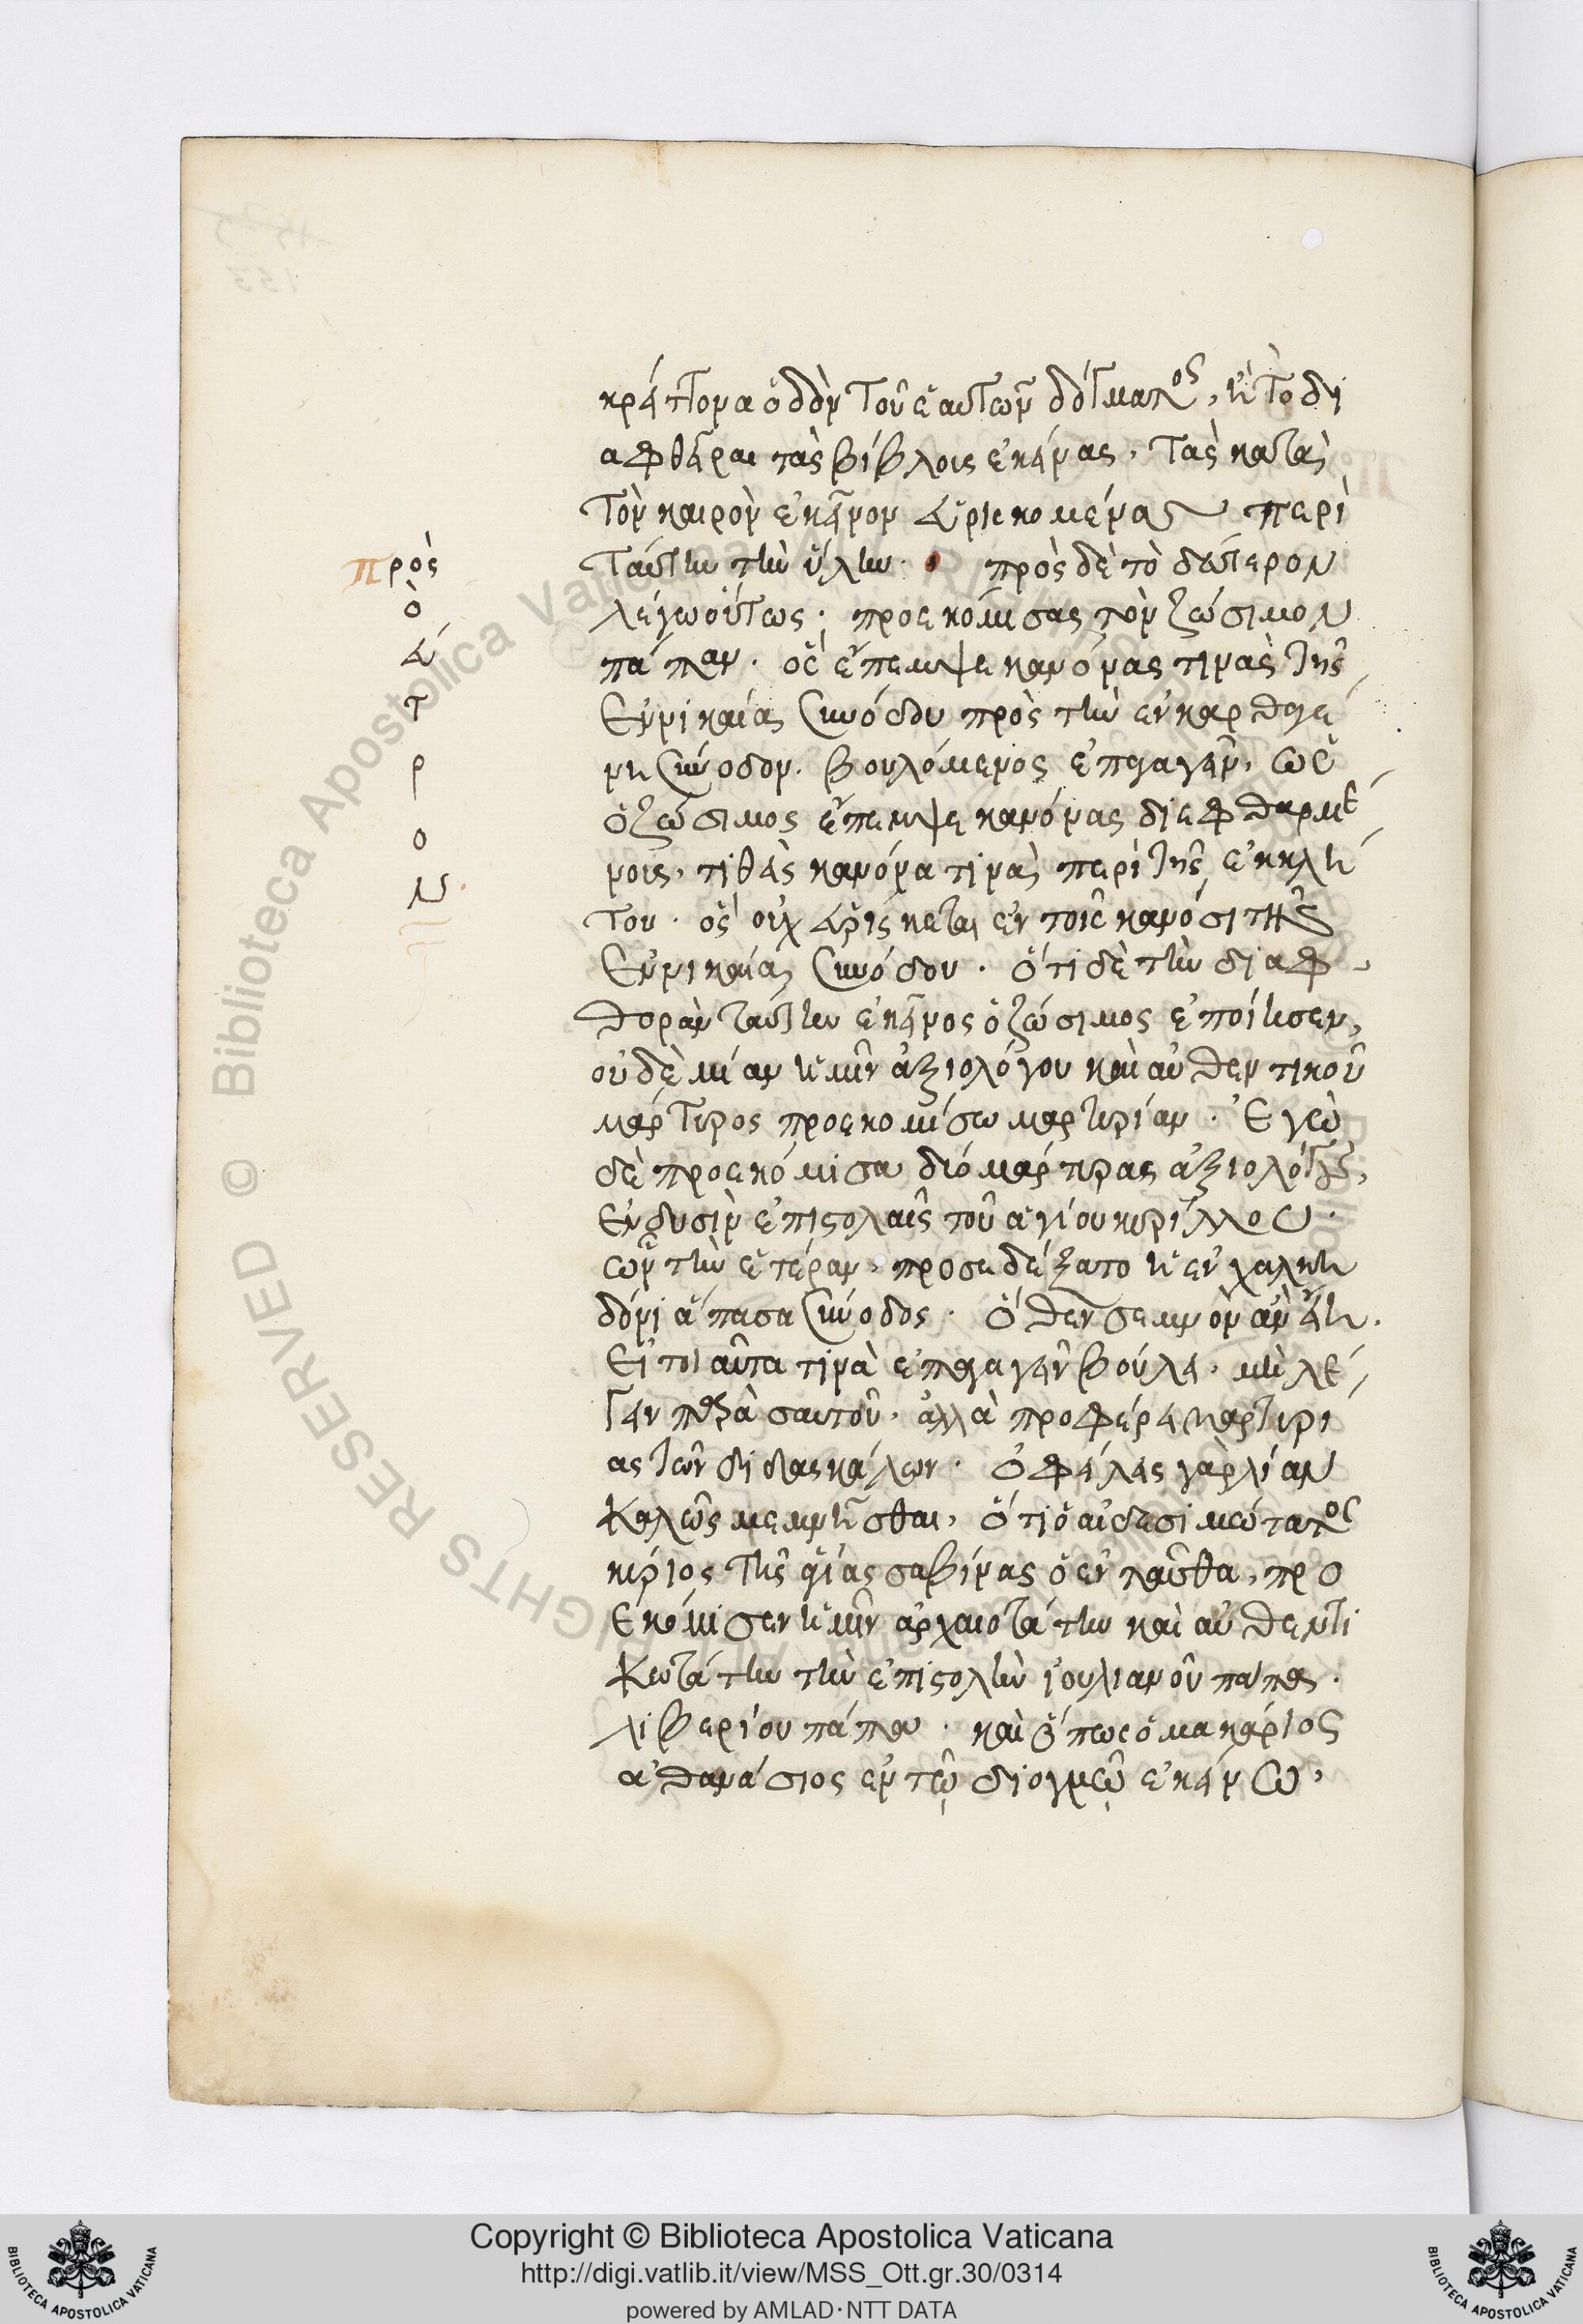 κράτιομα ὁδὸν τοῦ ἑαυτῶν δόγματος, ἢ τὸ δι
αφθεῖραι τὰς βίβλοις ἐκείνας, τὰς κατὰ
τὸν καιρὸν ἐκεῖνον εὑρισκομένας περὶ
ταύτην τὴν ὕλην. πρὸς δὲ τὸ δεύτερον
λέγω οὕτως. προσκόμισας τὸν ζώσιμον
πάπαν. ὃς ἔπεμψε κανόνας τινὰς τῆς
Ἐν νικαία συνόδου πρὸς τὴν ἐν καρθαγέ
νη σύνοδον. βουλόμενος ἐπεισαγεῖν, ὡς
ὁ ζώσιμος ἔπεμψε κανόνας διεφθαρμέ
νοις, τιθεὶς κανόνα τινὰ περὶ τῆς ἐκκλή
του. ὃς οὐχ εὑρίσκεται ἐν τοῖς κανόσι τῆς
Ἐν νικαία συνόδου. ὅτι δὲ τὴν διαφ
θορὰν ταύτην ἐκεῖνος ὁ ζώσιμος ἐποίησεν,
οὐδὲ μίαν ἡμῖν ἀξιολόγου καὶ αὐθεντικοῦ
μάρτυρος προσκομίσω μαρτυρίαν. Ἐγὼ
δὲ προσεκόμισα δύο μάρτυρας ἀξιολόγους,
Ἐν δυσὶν ἐπιστολαῖς τοῦ ἁγίου κυρίλλου.
ὧν τὴν ἑτέραν προσεδέξατο ἡ ἐν χαλκη
δόνι ἅπασα σύνοδος. ὅθεν σεμνὸν ἂν εἴη.
Εἰ τοιαῦτα τινὰ ἐπεισαγεῖν βούλει, μὴ λέ
γειν παρὰ σαυτοῦ, ἀλλὰ προφέρει μαρτυρί
ας τῶν διδασκάλων. ὀφείλεις γὰρ λίαν
Καλῶς μεμνῆσθαι, ὅτι ὁ αἰδεσιμώτατος
κύριος τῆς ἁγίας σαβίνας ὁ ἐνταῦθα, προ
Εκόμισεν ἡμῖν ἀρχαιοτάτην καὶ αὐθεντι
Κωτάτην τὴν ἐπιστολὴν ἰουλιανοῦ πάπα.
λιβερίου πάπα. καὶ ὅπως ὁ μακάριος
ἀθανάσιος ἐν τῷ διογμῷ ἐκείνῳ,
πρὸς
ὸ
εύ
τ
ρ
ο
ν
Copyright © Biblioteca Apostolica Vaticana
http://digi.vatlib.it/view/MSS_Ott.gr.30/0314
powered by AMLAD·NTT DATA